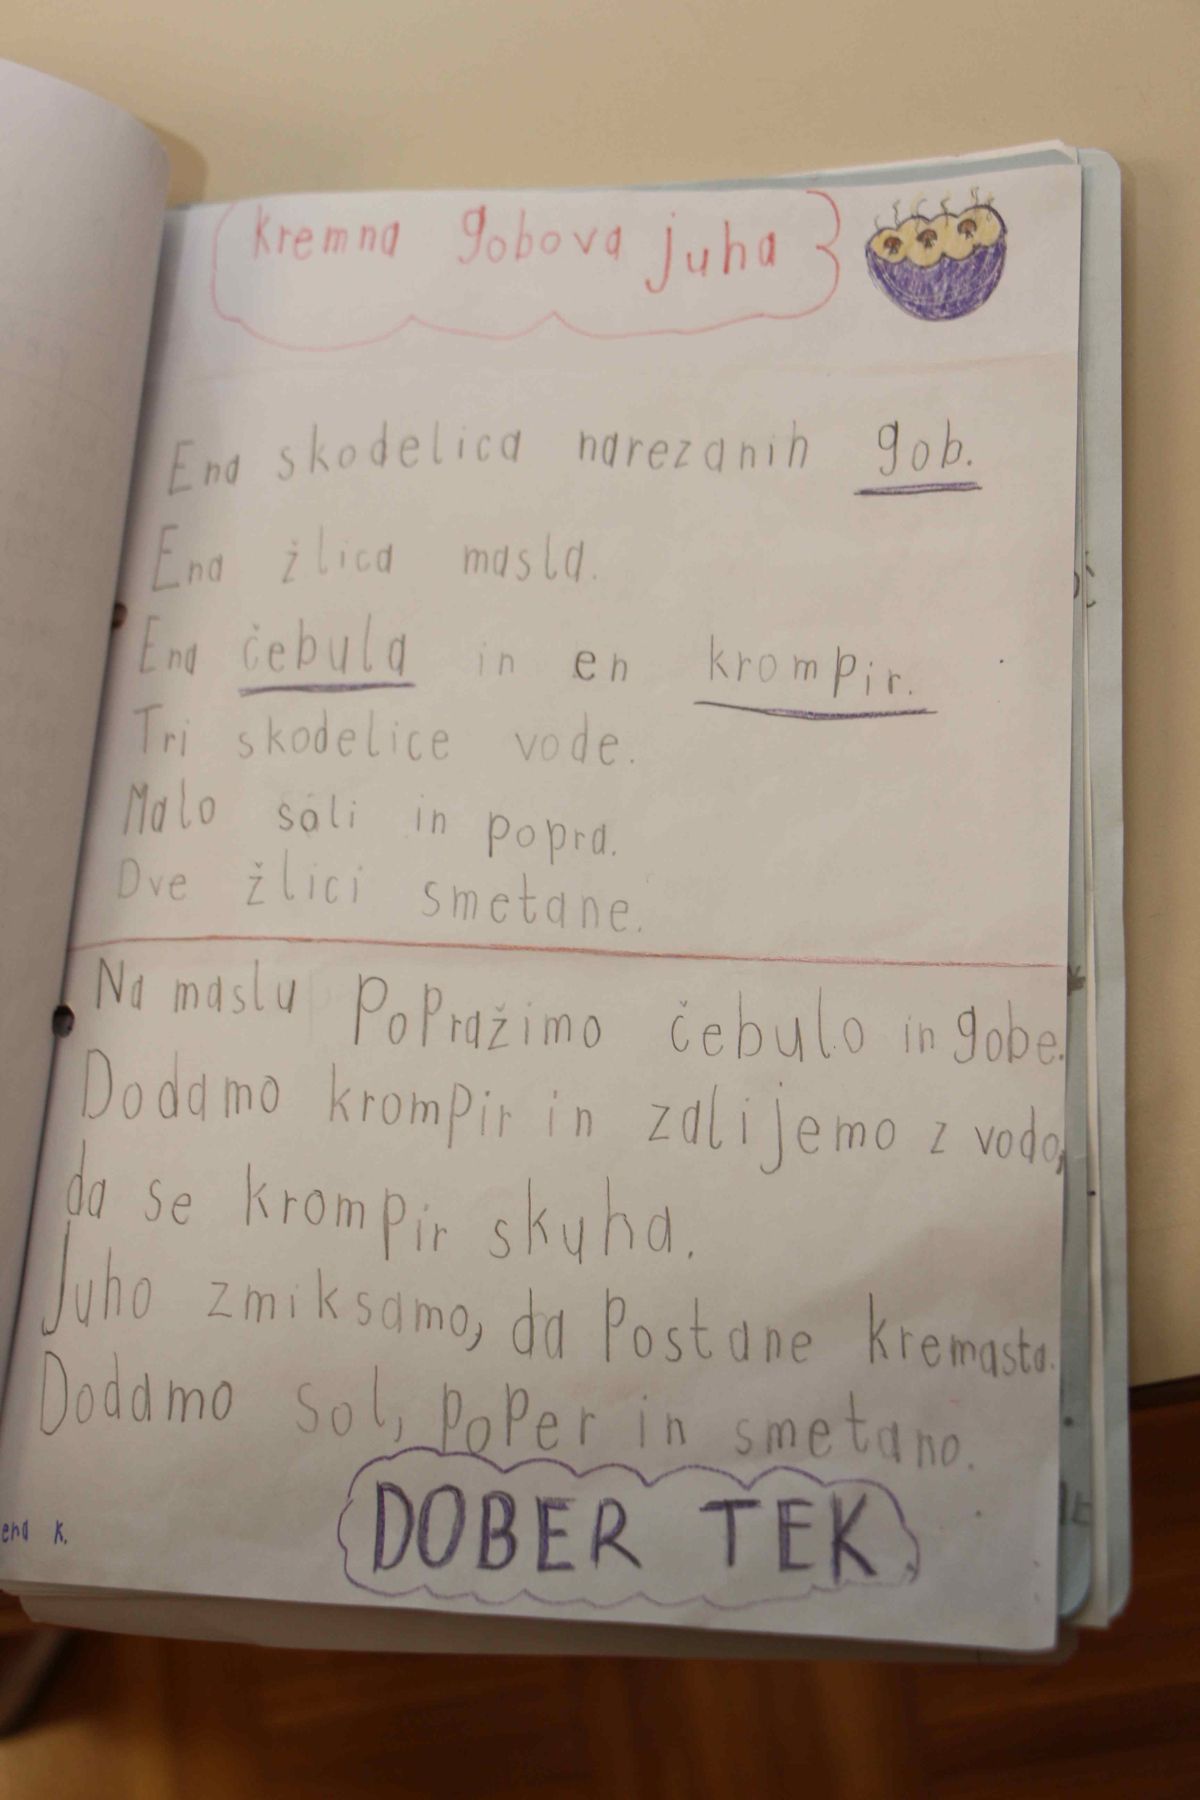 kremna gobova juha
Ena skodelica narezanih gob.
Ena žlica masla.
Ena čebula in en krompir.
Tri skodelice vode.
Malo soli in popra.
Dve žlici smetane.
Na maslu popražimo čebulo in gobe.
Dodamo krompir in zalijemo z vodo,
da se krompir skuha.
Juho zmiksamo, da postane kremasta.
Dodamo sol, poper in smetano.
DOBER TEK
K.